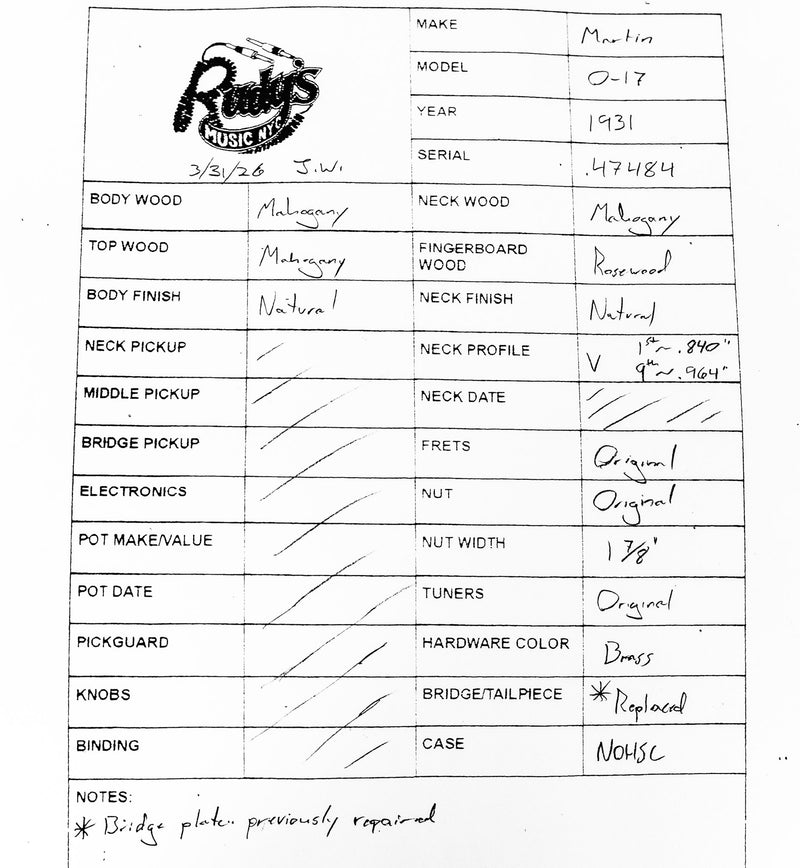 Rudy's
MUSIC NYC
3/31/26 J.W.
MAKE Martin
MODEL 0-17
YEAR 1931
SERIAL 47484
BODY WOOD Mahogany NECK WOOD Mahogany
TOP WOOD Mahogany FINGERBOARD WOOD Rosewood
BODY FINISH Natural NECK FINISH Natural
NECK PICKUP NECK PROFILE V 1st ~ .840" 9th ~ .964"
MIDDLE PICKUP NECK DATE
BRIDGE PICKUP FRETS Original
ELECTRONICS NUT Original
POT MAKE/VALUE NUT WIDTH 1 7/8"
POT DATE TUNERS Original
PICKGUARD HARDWARE COLOR Brass
KNOBS BRIDGE/TAILPIECE * Replaced
BINDING CASE NOHSC
NOTES:
* Bridge plate previously repaired